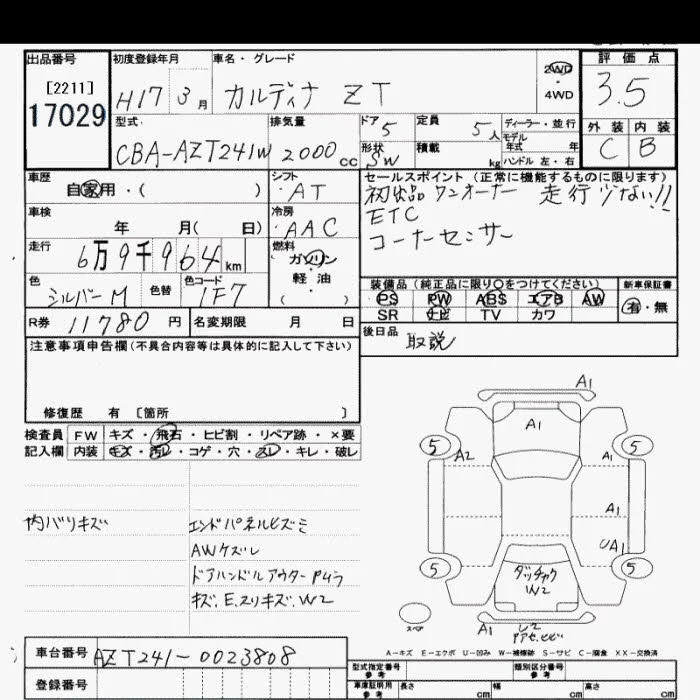 出品番号 初度登録年月 車名・グレード 2WD 評価点
[2211] H17 3月 カルディナ ZT ・4WD 3.5
17029
型式 排気量 ドア 定員 ディーラー・並行 外装 内装
CBA-AZT241W 2000cc 5 5人 モデル年式 年 C B
形状 SW 積載 kg ハンドル 左・右
車歴 自家用・( ) シフト ・AT セールスポイント(正常に機能するものに限ります)
初出品 ワンオーナー 走行少ない!!
車検 年 月( 日) 冷房 ・AAC ETC
コーナーセンサー
走行 6万9千964km 燃料 ガソリン
軽油
・( )
色 シルバーM 色替 色コード 1F7
装備品(純正品に限り○をつけてください) 新車保証書
PS PW ABS エアB AW 有・無
SR ナビ TV カワ
R券 11780円 名変期限 月 日 後日品 取説
注意事項申告欄(不具合内容等は具体的に記入して下さい)
修復歴 有 〔箇所 〕
検査員 FW キズ・飛石・ヒビ割・リペア跡・×要
記入欄 内装 キズ・汚レ・コゲ・穴・スレ・キレ・破レ
内バリキズ エンドパネルヒズミ
AWケズレ
ドアハンドルアウターP4ラ
キズ.Eスリキズ.W2
A1
A1
5 5
A2 A1
A1
UA1
5 5
ダッチャク
W2
スペア
A1
A-キズ E-エクボ U-凹み W-補修跡 S-サビ C-腐食 XX-交換済
車台番号 AZT241-0023808
型式指定番号 参考 類別区分番号 参考
登録番号
車庫証明用 参考 長さ cm 幅 cm 高さ cm